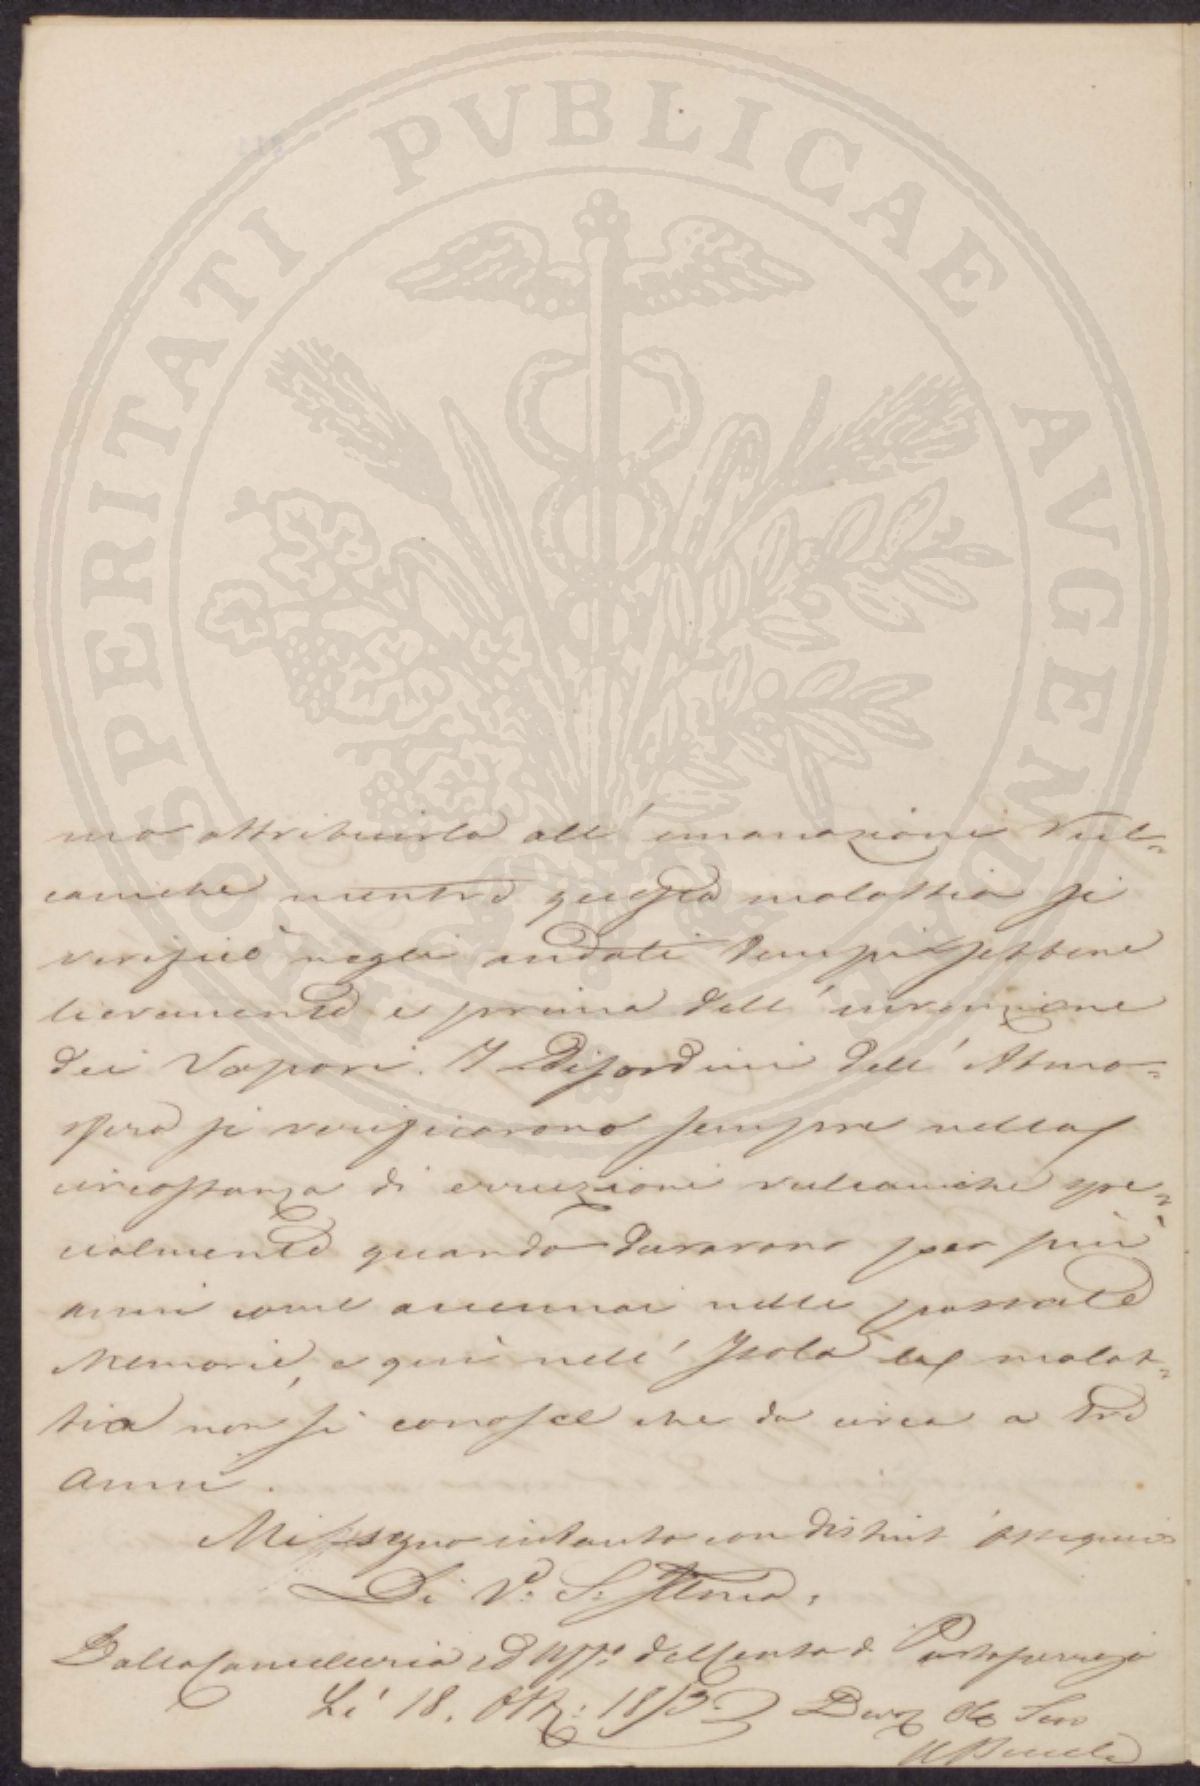 PROSPERITATI PVBLICAE AVGENDAE
mo attribuirla all'emanazioni Vul=
caniche mentre questa malattia si
verificò negli andati tempi sebbene
lievemente e prima dell'invenzione
dei Vapori. I Disordini dell'Atmo=
sfera si verificarono sempre nella
circostanza di erruzioni vulcaniche spe=
cialmente quando durarono per più
anni come accennai nelle passate
Memorie, e quì nell'Isola la malat=
tia non si conosce che da circa a tre
anni.
Mi segno intanto con distint ossequio
Di V. S. Illma,
Dalla Cancelleria ed Uffo del Censo di Portoferrajo
Li 18. Ott: 1853. Devo Obb Sero